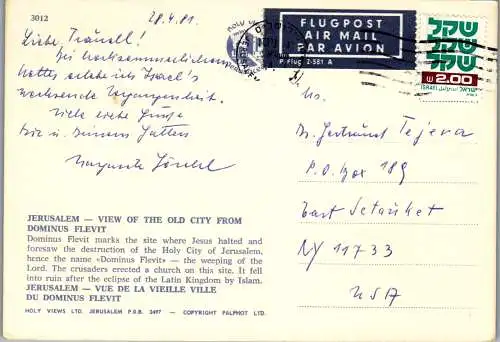 3012
28.4.81.
FLUGPOST
AIR MAIL
PAR AVION
P-Flug 2-581 A
שקל
שקל
שקל
2.00
ISRAEL ישראל
Liebe
Bei
Wetter erlebe ich Israel's
wechselnde Vergangenheit.
Viele liebe Grüsse
Dir u. Deinem Gatten
An
Dr. Gertraud Tejera
P.O. Box 189
East Setauket
NY 11733
USA
JERUSALEM — VIEW OF THE OLD CITY FROM
DOMINUS FLEVIT
Dominus Flevit marks the site where Jesus halted and
foresaw the destruction of the Holy City of Jerusalem,
hence the name «Dominus Flevit» — the weeping of the
Lord. The crusaders erected a church on this site. It fell
into ruin after the eclipse of the Latin Kingdom by Islam.
JERUSALEM — VUE DE LA VIEILLE VILLE
DU DOMINUS FLEVIT
HOLY VIEWS LTD. JERUSALEM P.O.B. 2497 — COPYRIGHT PALPHOT LTD.